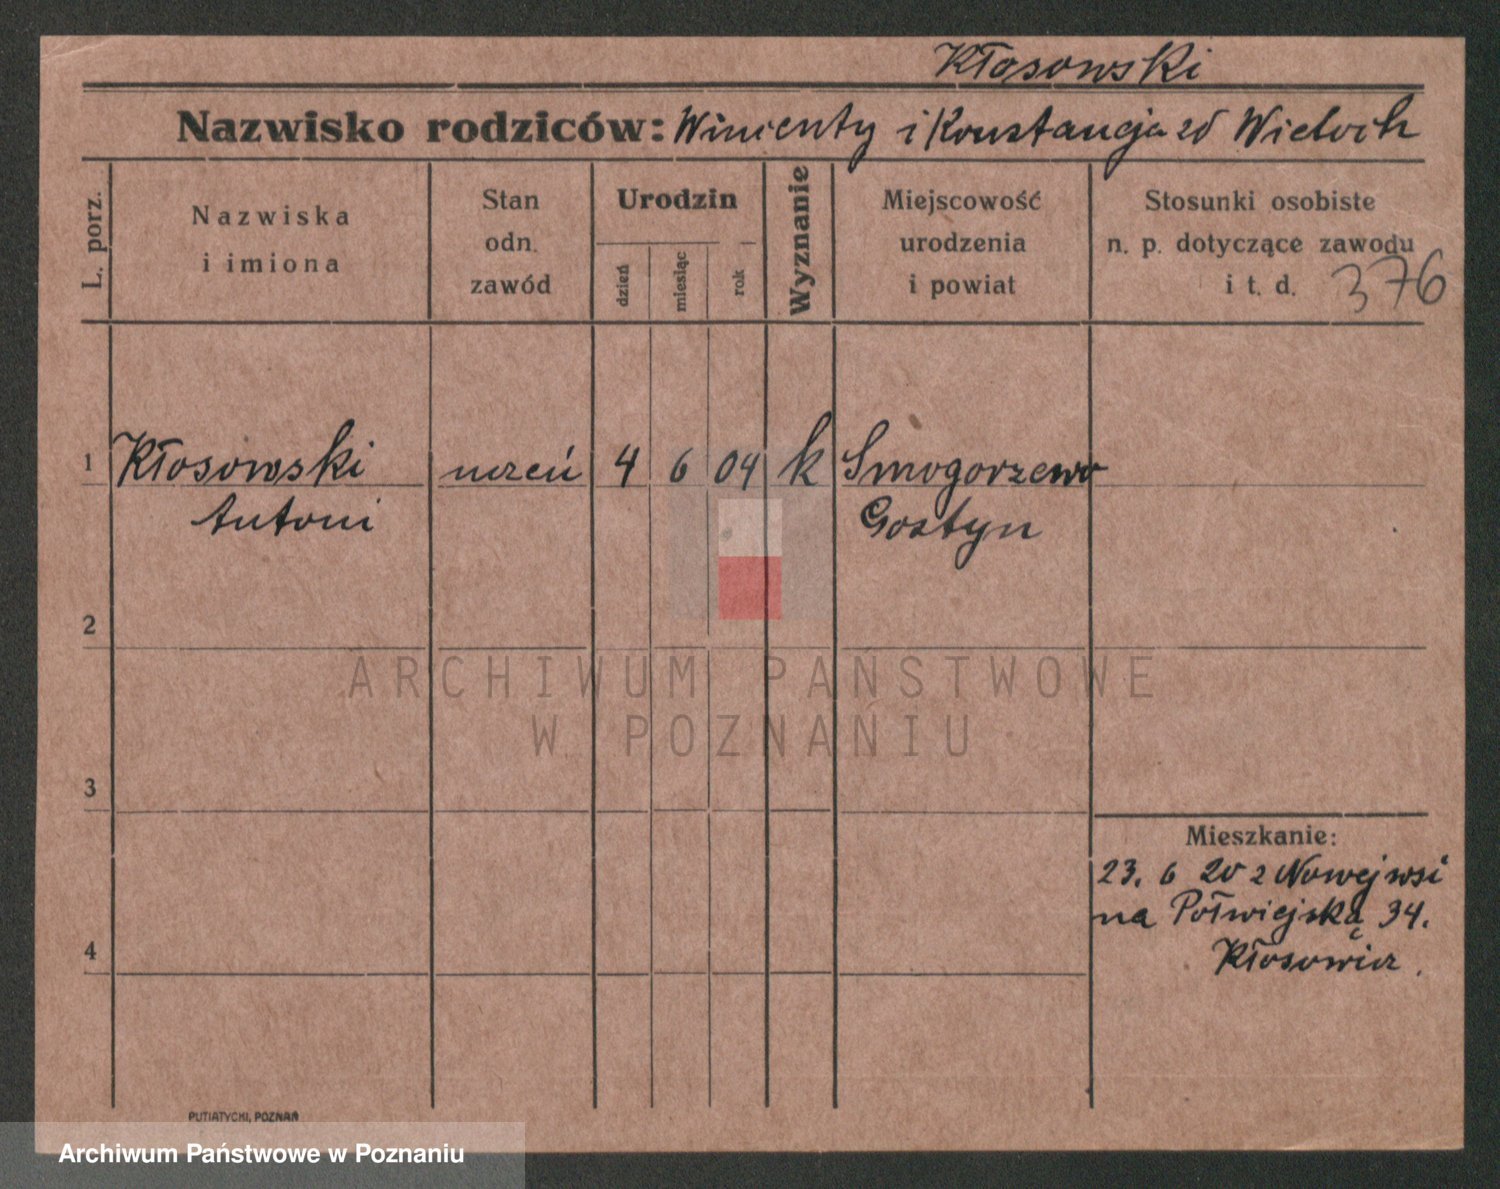 Kłosowski
Nazwisko rodziców: Wincenty i Konstancja zd Wieloch
L. porz.
Nazwiska
i imiona
Stan
odn.
zawód
Urodzin
dzień
miesiąc
rok
Wyznanie
Miejscowość
urodzenia
i powiat
Stosunki osobiste
n. p. dotyczące zawodu
i t. d.
376
1 Kłosowski uczeń 4 6 04 k Smogorzewo
Antoni Gostyn
2
ARCHIWUM PAŃSTWOWE
W POZNANIU
3
Mieszkanie:
23. 6 20 z Nowejwsi
na Półwiejską 34.
4
PUTIATYCKI, POZNAŃ
Archiwum Państwowe w Poznaniu